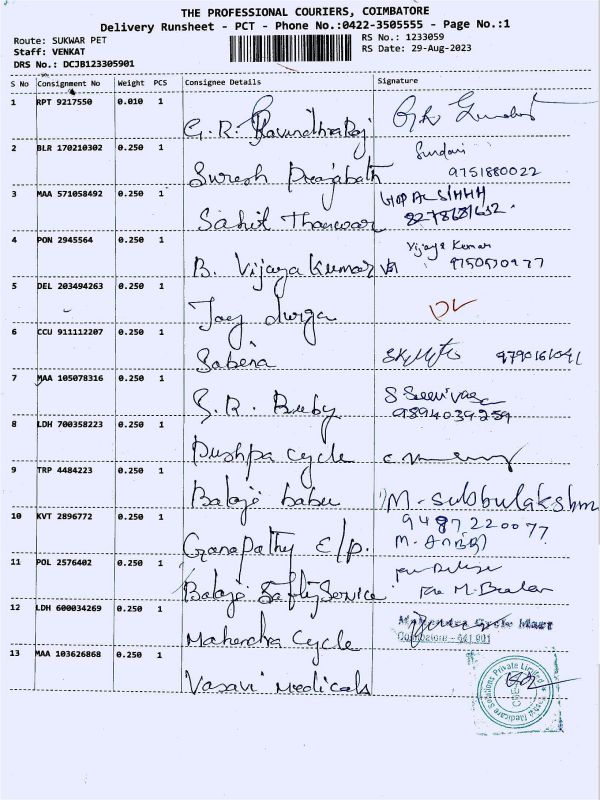 THE PROFESSIONAL COURIERS, COIMBATORE
Delivery Runsheet - PCT - Phone No.:0422-3505555 - Page No.:1
Route: SUKWAR PET
Staff: VENKAT
DRS No.: DCJB123305901
RS No.: 1233059
RS Date: 29-Aug-2023
S No Consignment No Weight PCS Consignee Details Signature
1 RPT 9217550 0.010 1
G. R. Ravindhraraj
2 BLR 170210302 0.250 1 Sundari
Suresh Prajabath 9751880022
3 MAA 571058492 0.250 1 GOPAL SINHH
Sahil Thanwar
4 PON 2945564 0.250 1 Vijaya Kumar
B. Vijaya Kumar
5 DEL 203494263 0.250 1
Jay durga
6 CCU 911112207 0.250 1
Sabena 9790161041
7 MAA 105078316 0.250 1 S Seenivasa
S. R. Buby 9894039259
8 LDH 700358223 0.250 1
Pushpa cycle
9 TRP 4484223 0.250 1
Balaji babu M. subbulakshm
10 KVT 2896772 0.250 1 9487220077
Ganapathy E/p.
11 POL 2576402 0.250 1
Balaji Safty Service
12 LDH 600034269 0.250 1
Mahendra Cycle Coimbatore - 641 001
13 MAA 103626868 0.250 1
Vasavi Medicals